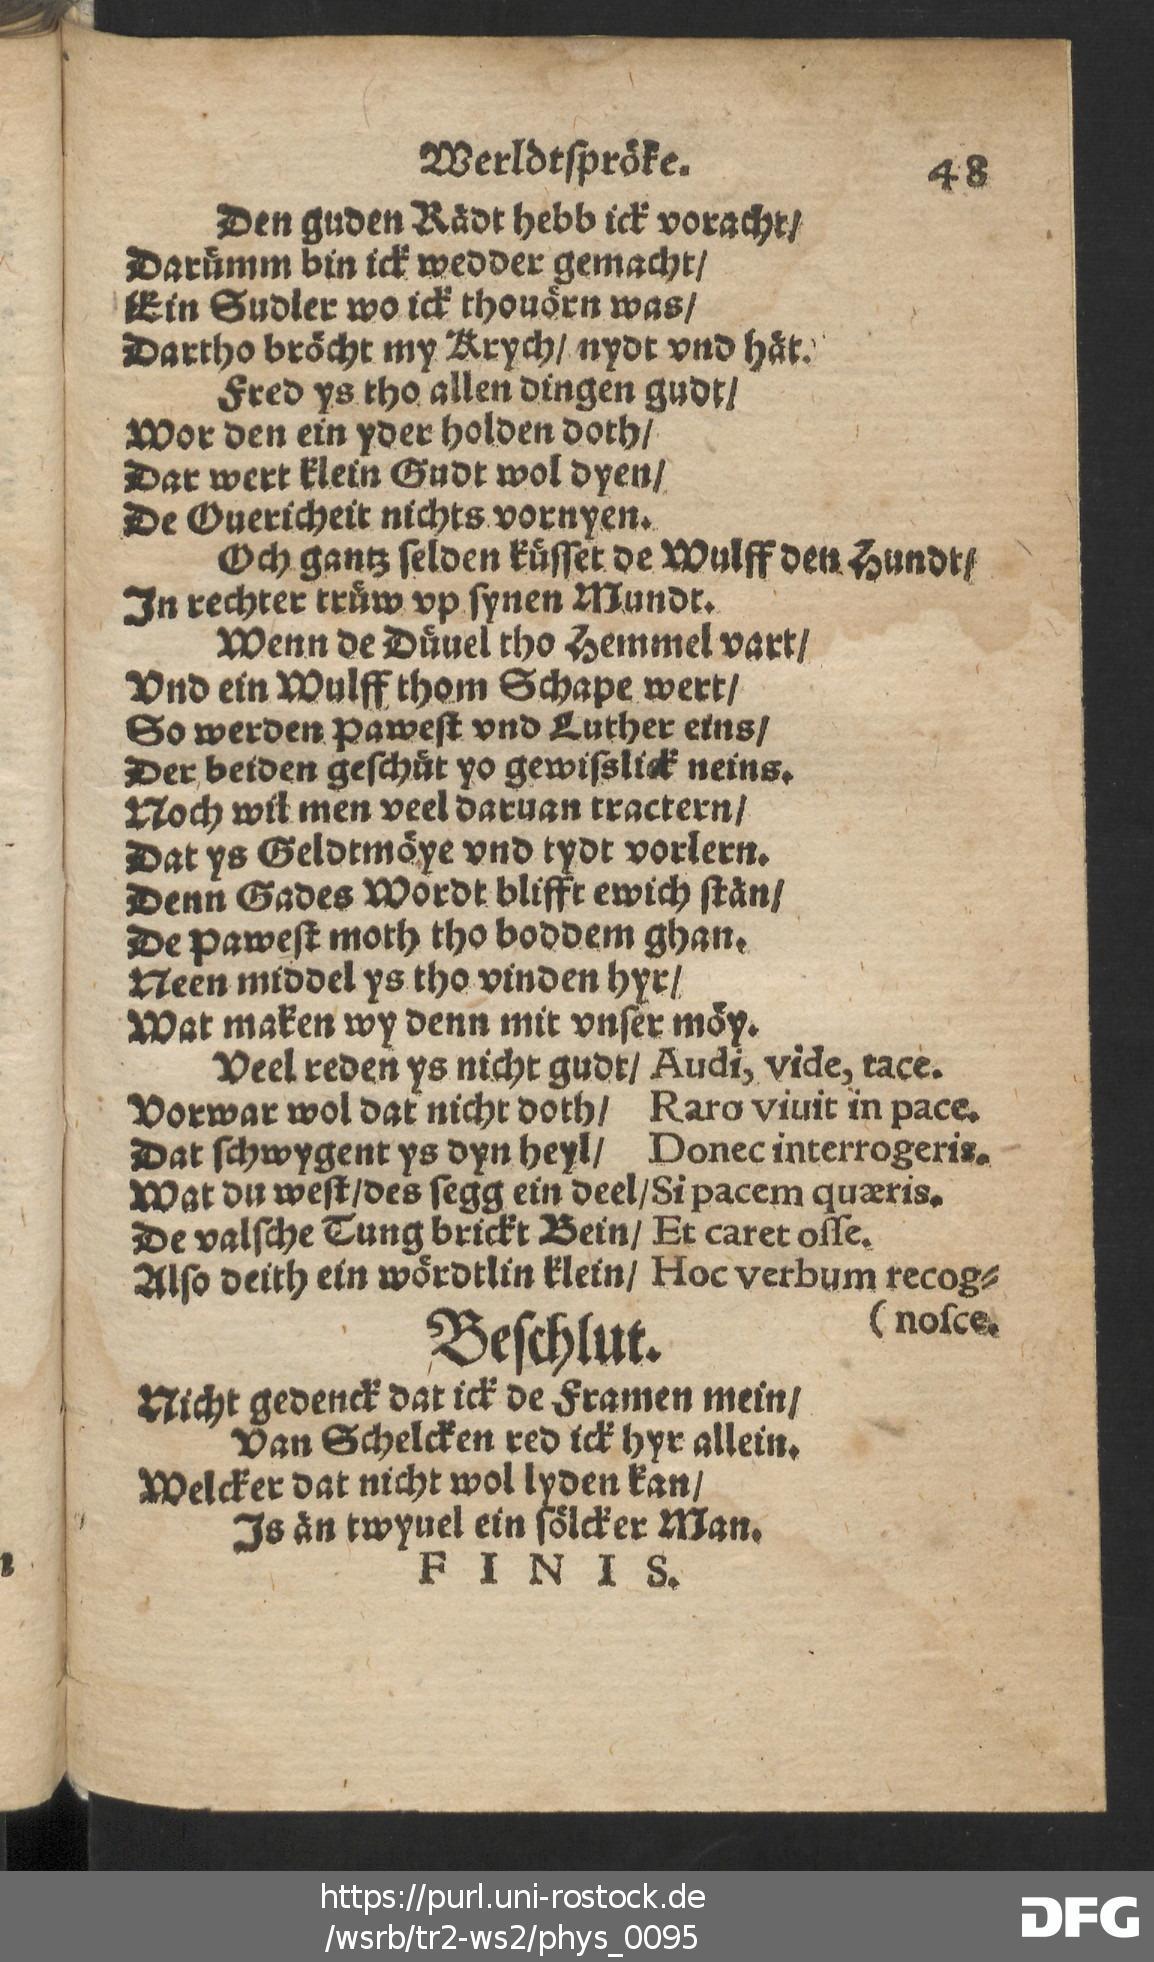 Werldtspröke.
48
Den guden Rädt hebb ick voracht/
Darümm bin ick wedder gemacht/
Ein Sudler wo ick thouörn was/
Dartho bröcht my Krych/ nydt vnd hät.
Fred ys tho allen dingen gudt/
Wor den ein yder holden doth/
Dar wert klein Gudt wol dyen/
De Ouericheit nichts vornyen.
Och gantz selden küsset de Wulff den Hundt/
In rechter trüw vp synen Mundt.
Wenn de Düuel tho Hemmel vart/
Vnd ein Wulff thom Schape wert/
So werden Pawest vnd Luther eins/
Der beiden geschüt yo gewisslick neins.
Noch wil men veel daruan tractern/
Dat ys Geldtmöye vnd tydt vorlern.
Denn Gades Wordt blifft ewich stän/
De Pawest moth tho boddem ghan.
Neen middel ys tho vinden hyr/
Wat maken wy denn mit vnser möy.
Veel reden ys nicht gudt/ Audi, vide, tace.
Vorwar wol dat nicht doth/ Raro viuit in pace.
Dat schwygent ys dyn heyl/ Donec interrogeris.
Wat du west/des segg ein deel/Si pacem quæris.
De valsche Tung brickt Bein/ Et caret osse.
Also deith ein wördtlin klein/ Hoc verbum recog-
(nosce.
Beschlut.
Nicht gedenck dat ick de Framen mein/
Van Schelcken red ick hyr allein.
Welcker dat nicht wol lyden kan/
Is än twyuel ein sölcker Man.
F I N I S.
https://purl.uni-rostock.de
/wsrb/tr2-ws2/phys_0095
DFG